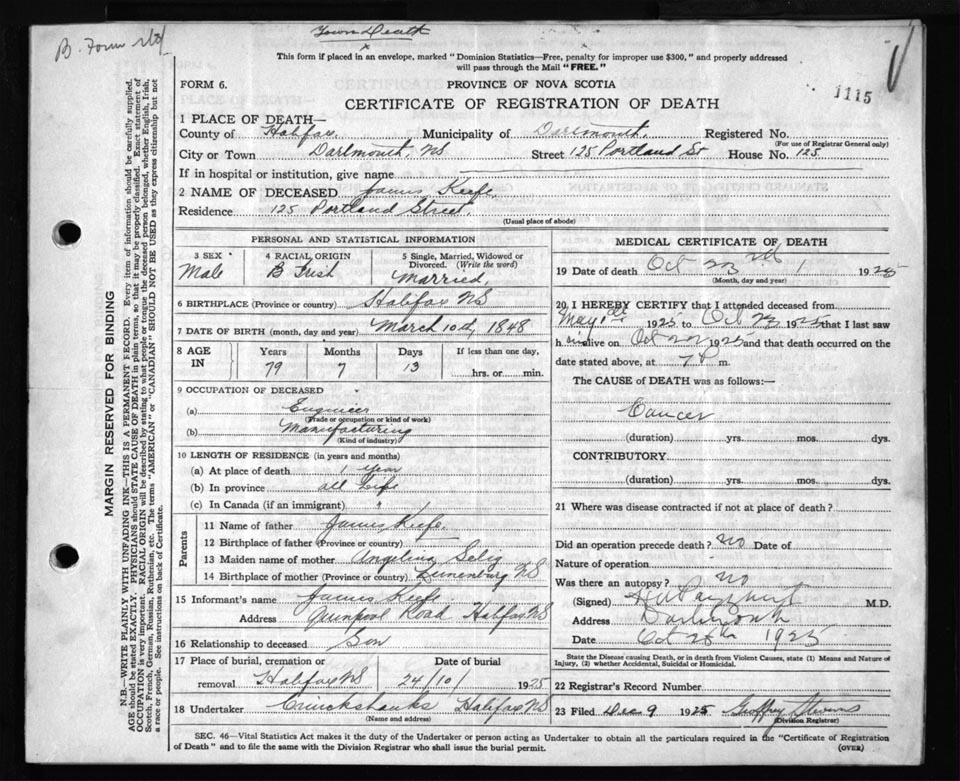 B. Form
Town Death
This form if placed in an envelope, marked "Dominion Statistics—Free, penalty for improper use $300," and properly addressed
will pass through the Mail "FREE."
FORM 6.
PROVINCE OF NOVA SCOTIA
1115
CERTIFICATE OF REGISTRATION OF DEATH
1 PLACE OF DEATH—
County of Halifax. Municipality of Dartmouth, Registered No.
(For use of Registrar General only)
City or Town Dartmouth, NS Street 125 Portland St House No. 125.
If in hospital or institution, give name
2 NAME OF DECEASED James Keefe
Residence 125 Portland Street.
(Usual place of abode)
PERSONAL AND STATISTICAL INFORMATION
3 SEX
Male
4 RACIAL ORIGIN
B Irish
5 Single, Married, Widowed or Divorced. (Write the word)
Married,
6 BIRTHPLACE (Province or country) Halifax NS
7 DATE OF BIRTH (month, day and year) March 10th, 1848
8 AGE IN
Years Months Days If less than one day,
79 7 13 hrs. or min.
9 OCCUPATION OF DECEASED
(a) Engineer
(Trade or occupation or kind of work)
(b) Manufacturing
(Kind of industry)
10 LENGTH OF RESIDENCE (in years and months)
(a) At place of death 1 year
(b) In province all life
(c) In Canada (if an immigrant) "
Parents
11 Name of father James Keefe.
12 Birthplace of father (Province or country)
13 Maiden name of mother Angelina Selig
14 Birthplace of mother (Province or country) Lunenburg NS
15 Informant's name James Keefe.
Address Quinpool Road Halifax NS
16 Relationship to deceased Son
17 Place of burial, cremation or Date of burial
removal Halifax NS 24/10/ 1925
18 Undertaker Cruickshanks Halifax NS
(Name and address)
MEDICAL CERTIFICATE OF DEATH
19 Date of death Oct 23rd 1925
(Month, day and year)
20 I HEREBY CERTIFY that I attended deceased from
May 1925 to Oct 23 1925 that I last saw
him alive on Oct 1925 and that death occurred on the
date stated above, at 7 P m.
The CAUSE of DEATH was as follows:—
Cancer
(duration) yrs. mos. dys.
CONTRIBUTORY
(duration) yrs. mos. dys.
21 Where was disease contracted if not at place of death?
Did an operation precede death? no Date of
Nature of operation
Was there an autopsy? no
(Signed) M.D.
Address Dartmouth
Date Oct 26th 1925
State the Disease causing Death, or in death from Violent Causes, state (1) Means and Nature of
Injury, (2) whether Accidental, Suicidal or Homicidal.
22 Registrar's Record Number
23 Filed Dec 9 1925 Geoffrey Stevens
(Division Registrar)
SEC. 46—Vital Statistics Act makes it the duty of the Undertaker or person acting as Undertaker to obtain all the particulars required in the "Certificate of Registration
of Death" and to file the same with the Division Registrar who shall issue the burial permit.
(OVER)
MARGIN RESERVED FOR BINDING
N.B.—WRITE PLAINLY WITH UNFADING INK—THIS IS A PERMANENT RECORD. Every item of information should be carefully supplied.
AGE should be stated EXACTLY. PHYSICIANS should STATE CAUSE OF DEATH in plain terms, so that it may be properly classified. Exact statement of
OCCUPATION is very important. RACIAL ORIGIN will be described by stating to what people or tongue the deceased person belonged, whether English, Irish,
Scotch, French, German, Russian, Ruthenian, etc. The terms "AMERICAN" or "CANADIAN" SHOULD NOT BE USED as they express citizenship but not
a race or people. See instructions on back of Certificate.